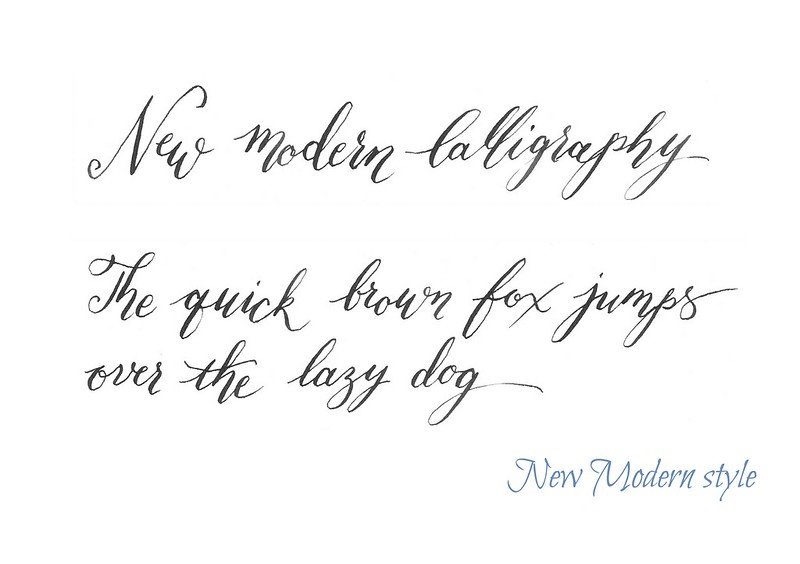 New modern Calligraphy
The quick brown fox jumps
over the lazy dog
New Modern style